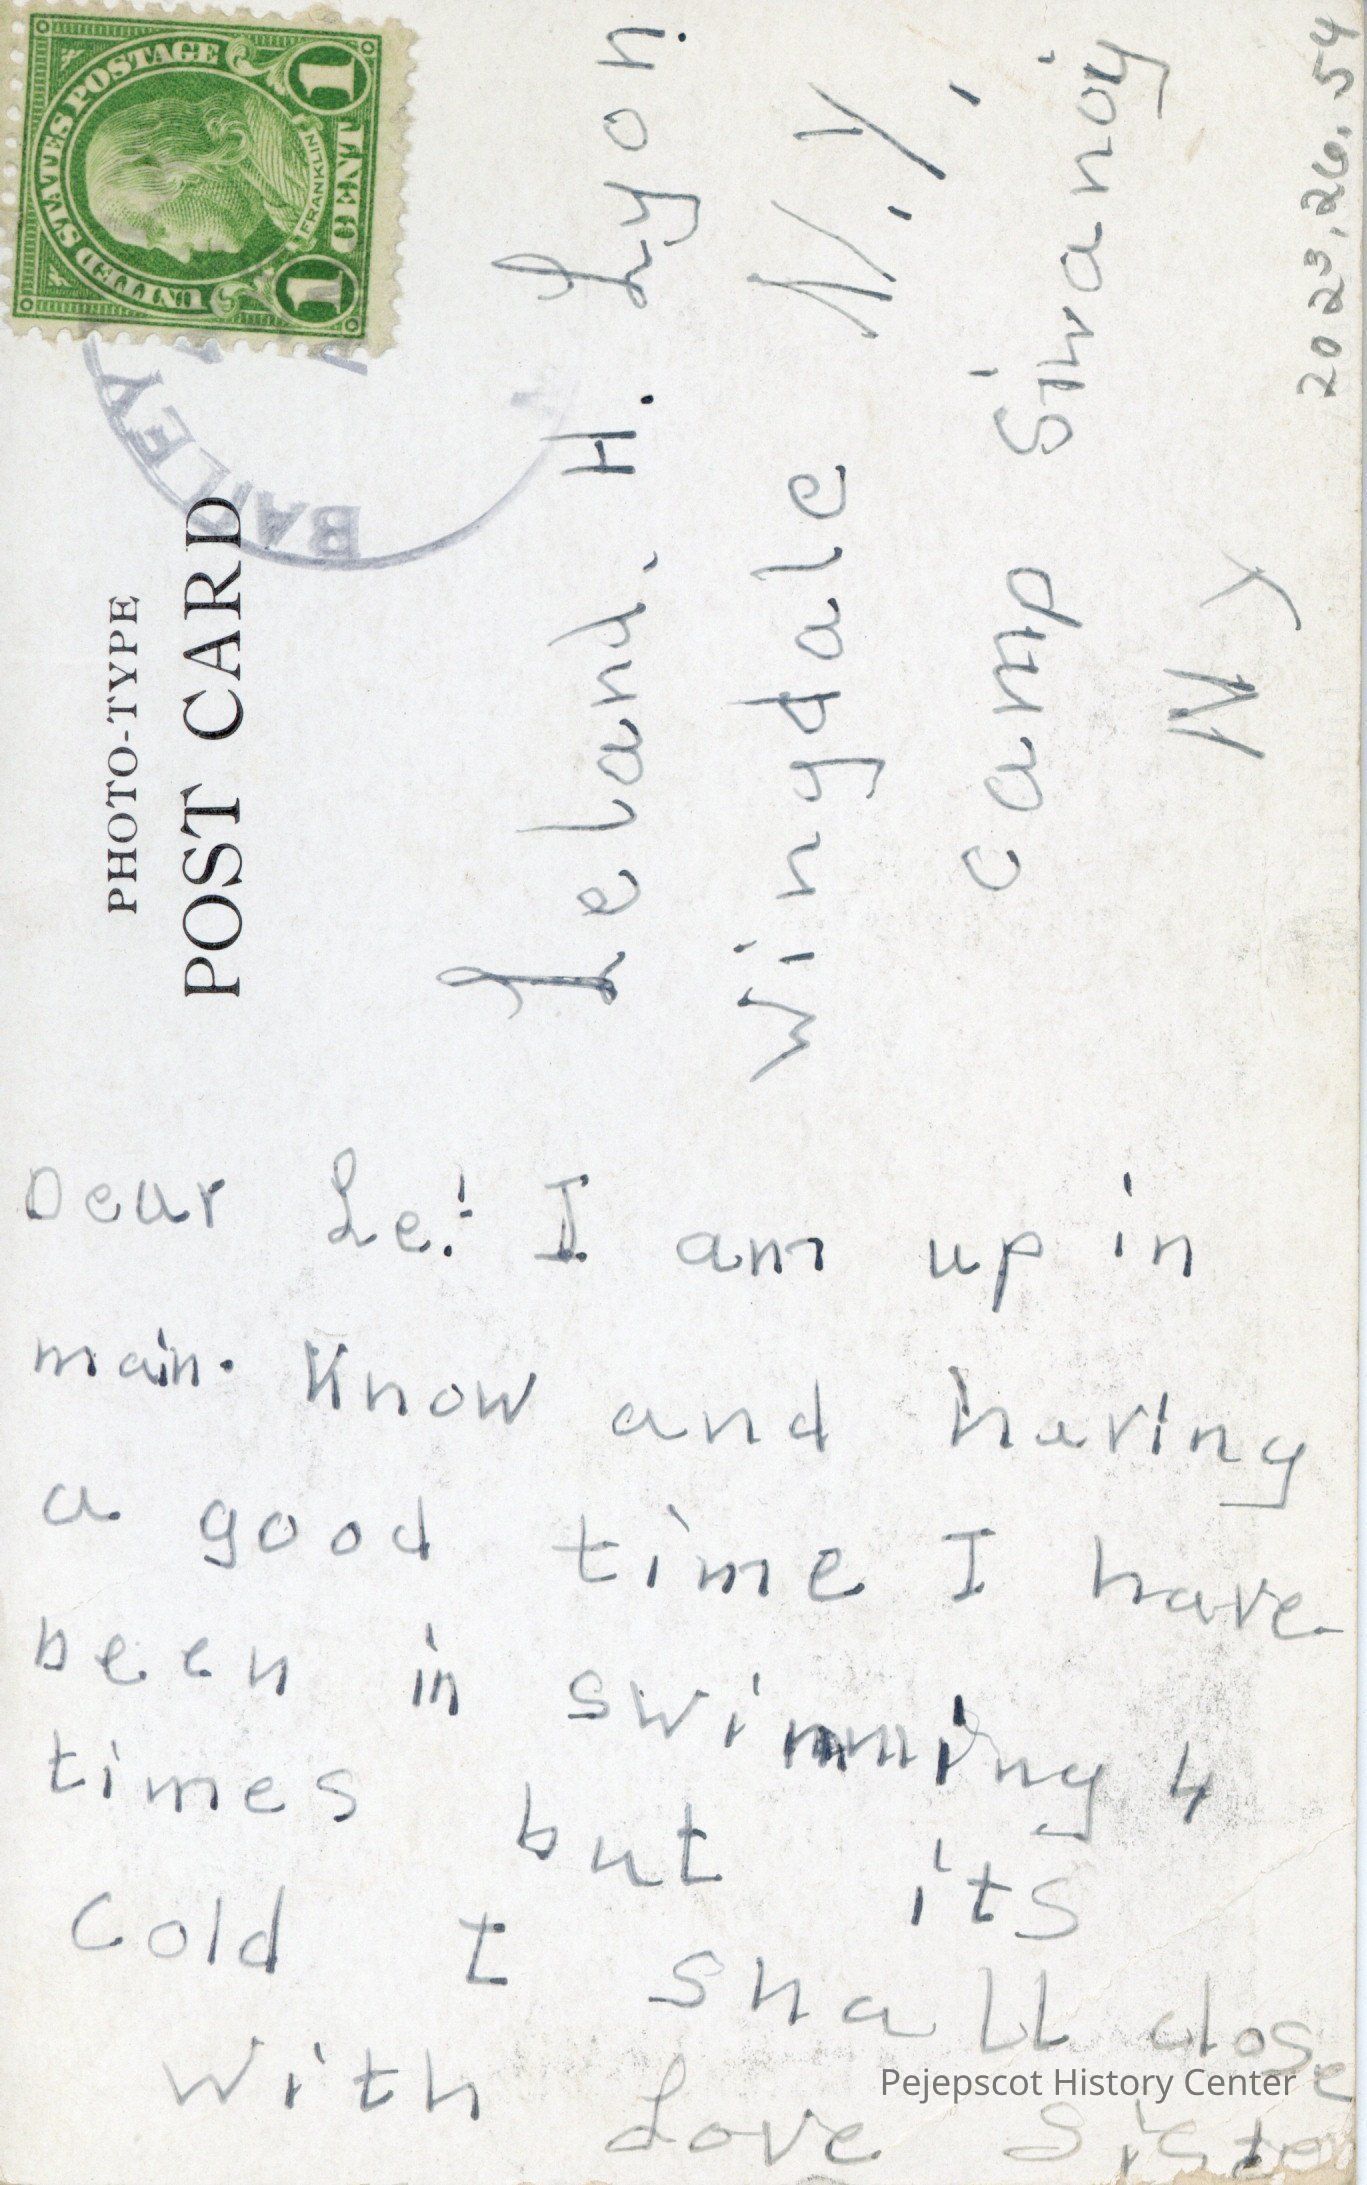 UNITED STATES POSTAGE
FRANKLIN
1 CENT 1
BAILEY
PHOTO-TYPE
POST CARD
Leland. H. Lyon.
Wingdale N.Y.
camp Siwanoy
NY
2023.26.54
Dear Le! I am up in
main. Know and having
a good time I have
been in swimming 4
times but its
Cold I shall close
with Love Sister
Pejepscot History Center